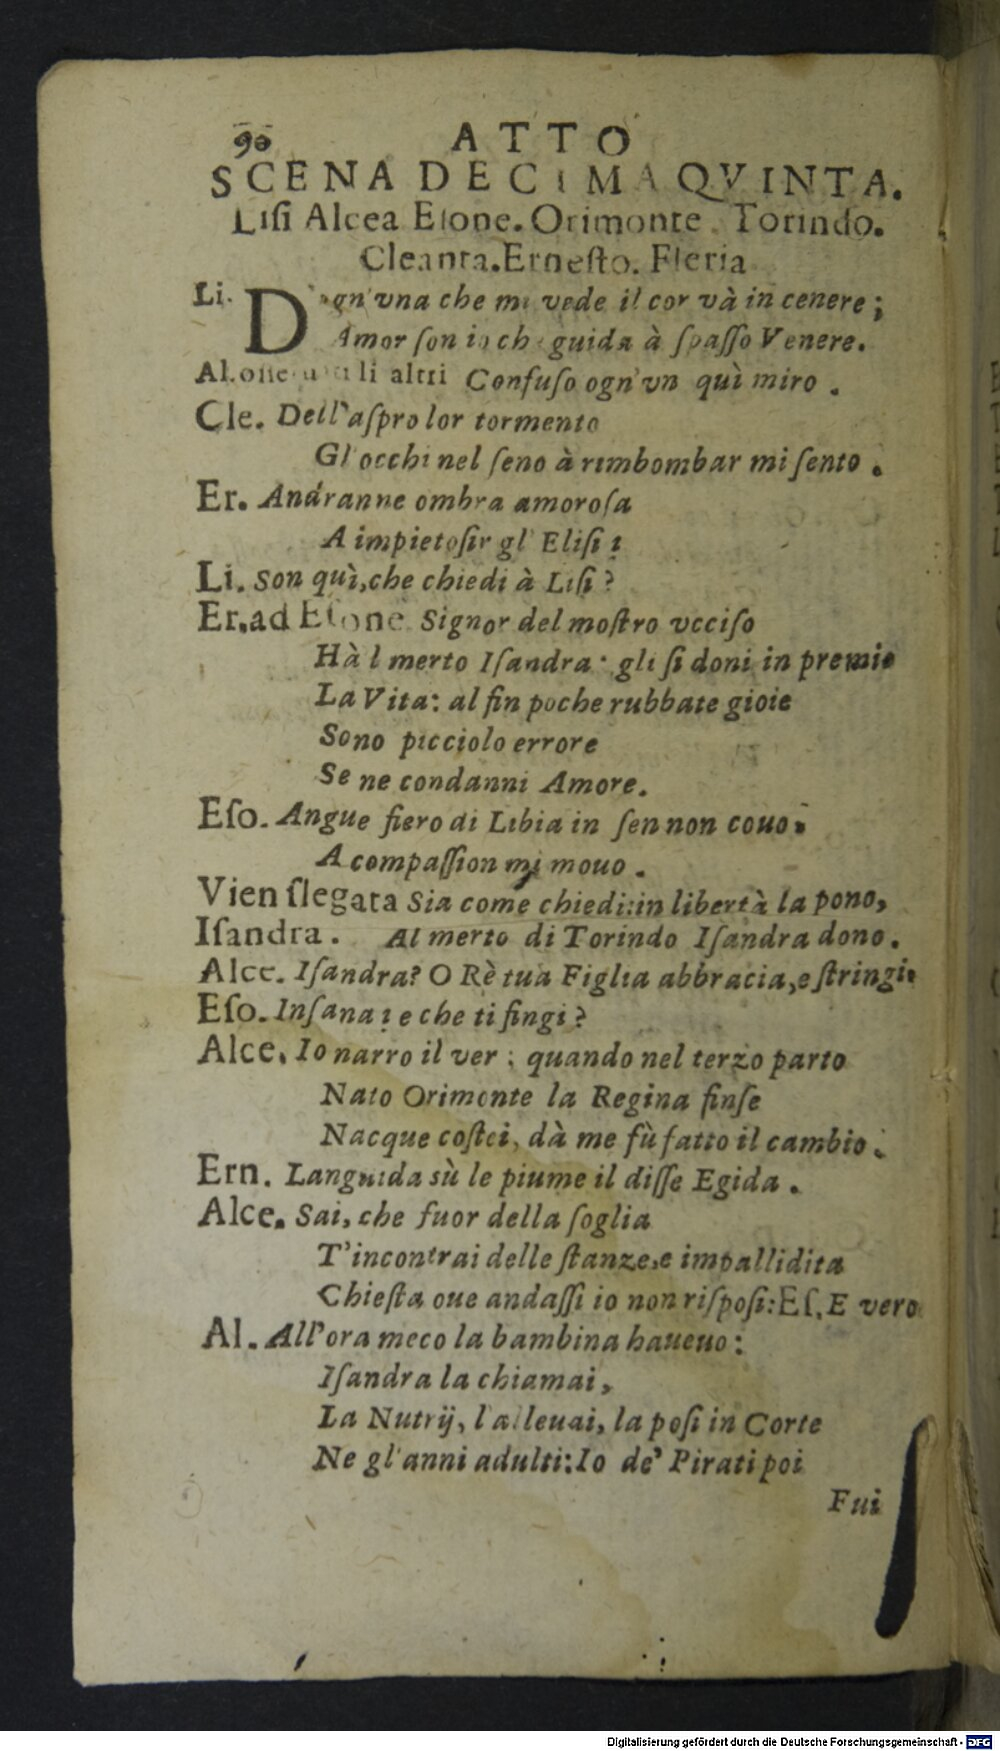 90 ATTO
SCENA DECIMAQVINTA.
Liſi Alcea Eſone. Orimonte. Torindo.
Cleanta. Erneſto. Fleria
Li. D'ogn'vna che mi vede il cor và in cenere;
Amor ſon io che guida à ſpaſſo Venere.
li altri Confuſo ogn'vn quì miro.
Cle. Dell'aſpro lor tormento
Gl'occhi nel ſeno à rimbombar mi ſento.
Er. Andranne ombra amoroſa
A impietoſir gl'Eliſi!
Li. Son quì, che chiedi à Liſi?
Er. ad Eſone Signor del moſtro vcciſo
Hà l merto Iſandra: gli ſi doni in premio
La Vita: al fin poche rubbate gioie
Sono picciolo errore
Se ne condanni Amore.
Eſo. Angue fiero di Libia in ſen non couo.
A compaſſion mi mouo.
Vien ſlegata Sia come chiedi: in libertà la pono,
Iſandra. Al merto di Torindo Iſandra dono.
Alce. Iſandra? O Rè tua Figlia abbracia, e ſtringi.
Eſo. Inſana! e che ti fingi?
Alce. Io narro il ver: quando nel terzo parto
Nato Orimonte la Regina finſe
Nacque coſtei, dà me fù fatto il cambio.
Ern. Languida sù le piume il diſſe Egida.
Alce. Sai, che fuor della ſoglia
T'incontrai delle ſtanze, e impallidita
Chieſta oue andaſſi io non riſpoſi: Eſ. E vero
Al. All'ora meco la bambina haueuo:
Iſandra la chiamai,
La Nutrij, l'alleuai, la poſi in Corte
Ne gl'anni adulti: Io de' Pirati poi
Fui
Digitalisierung gefördert durch die Deutsche Forschungsgemeinschaft - DFG